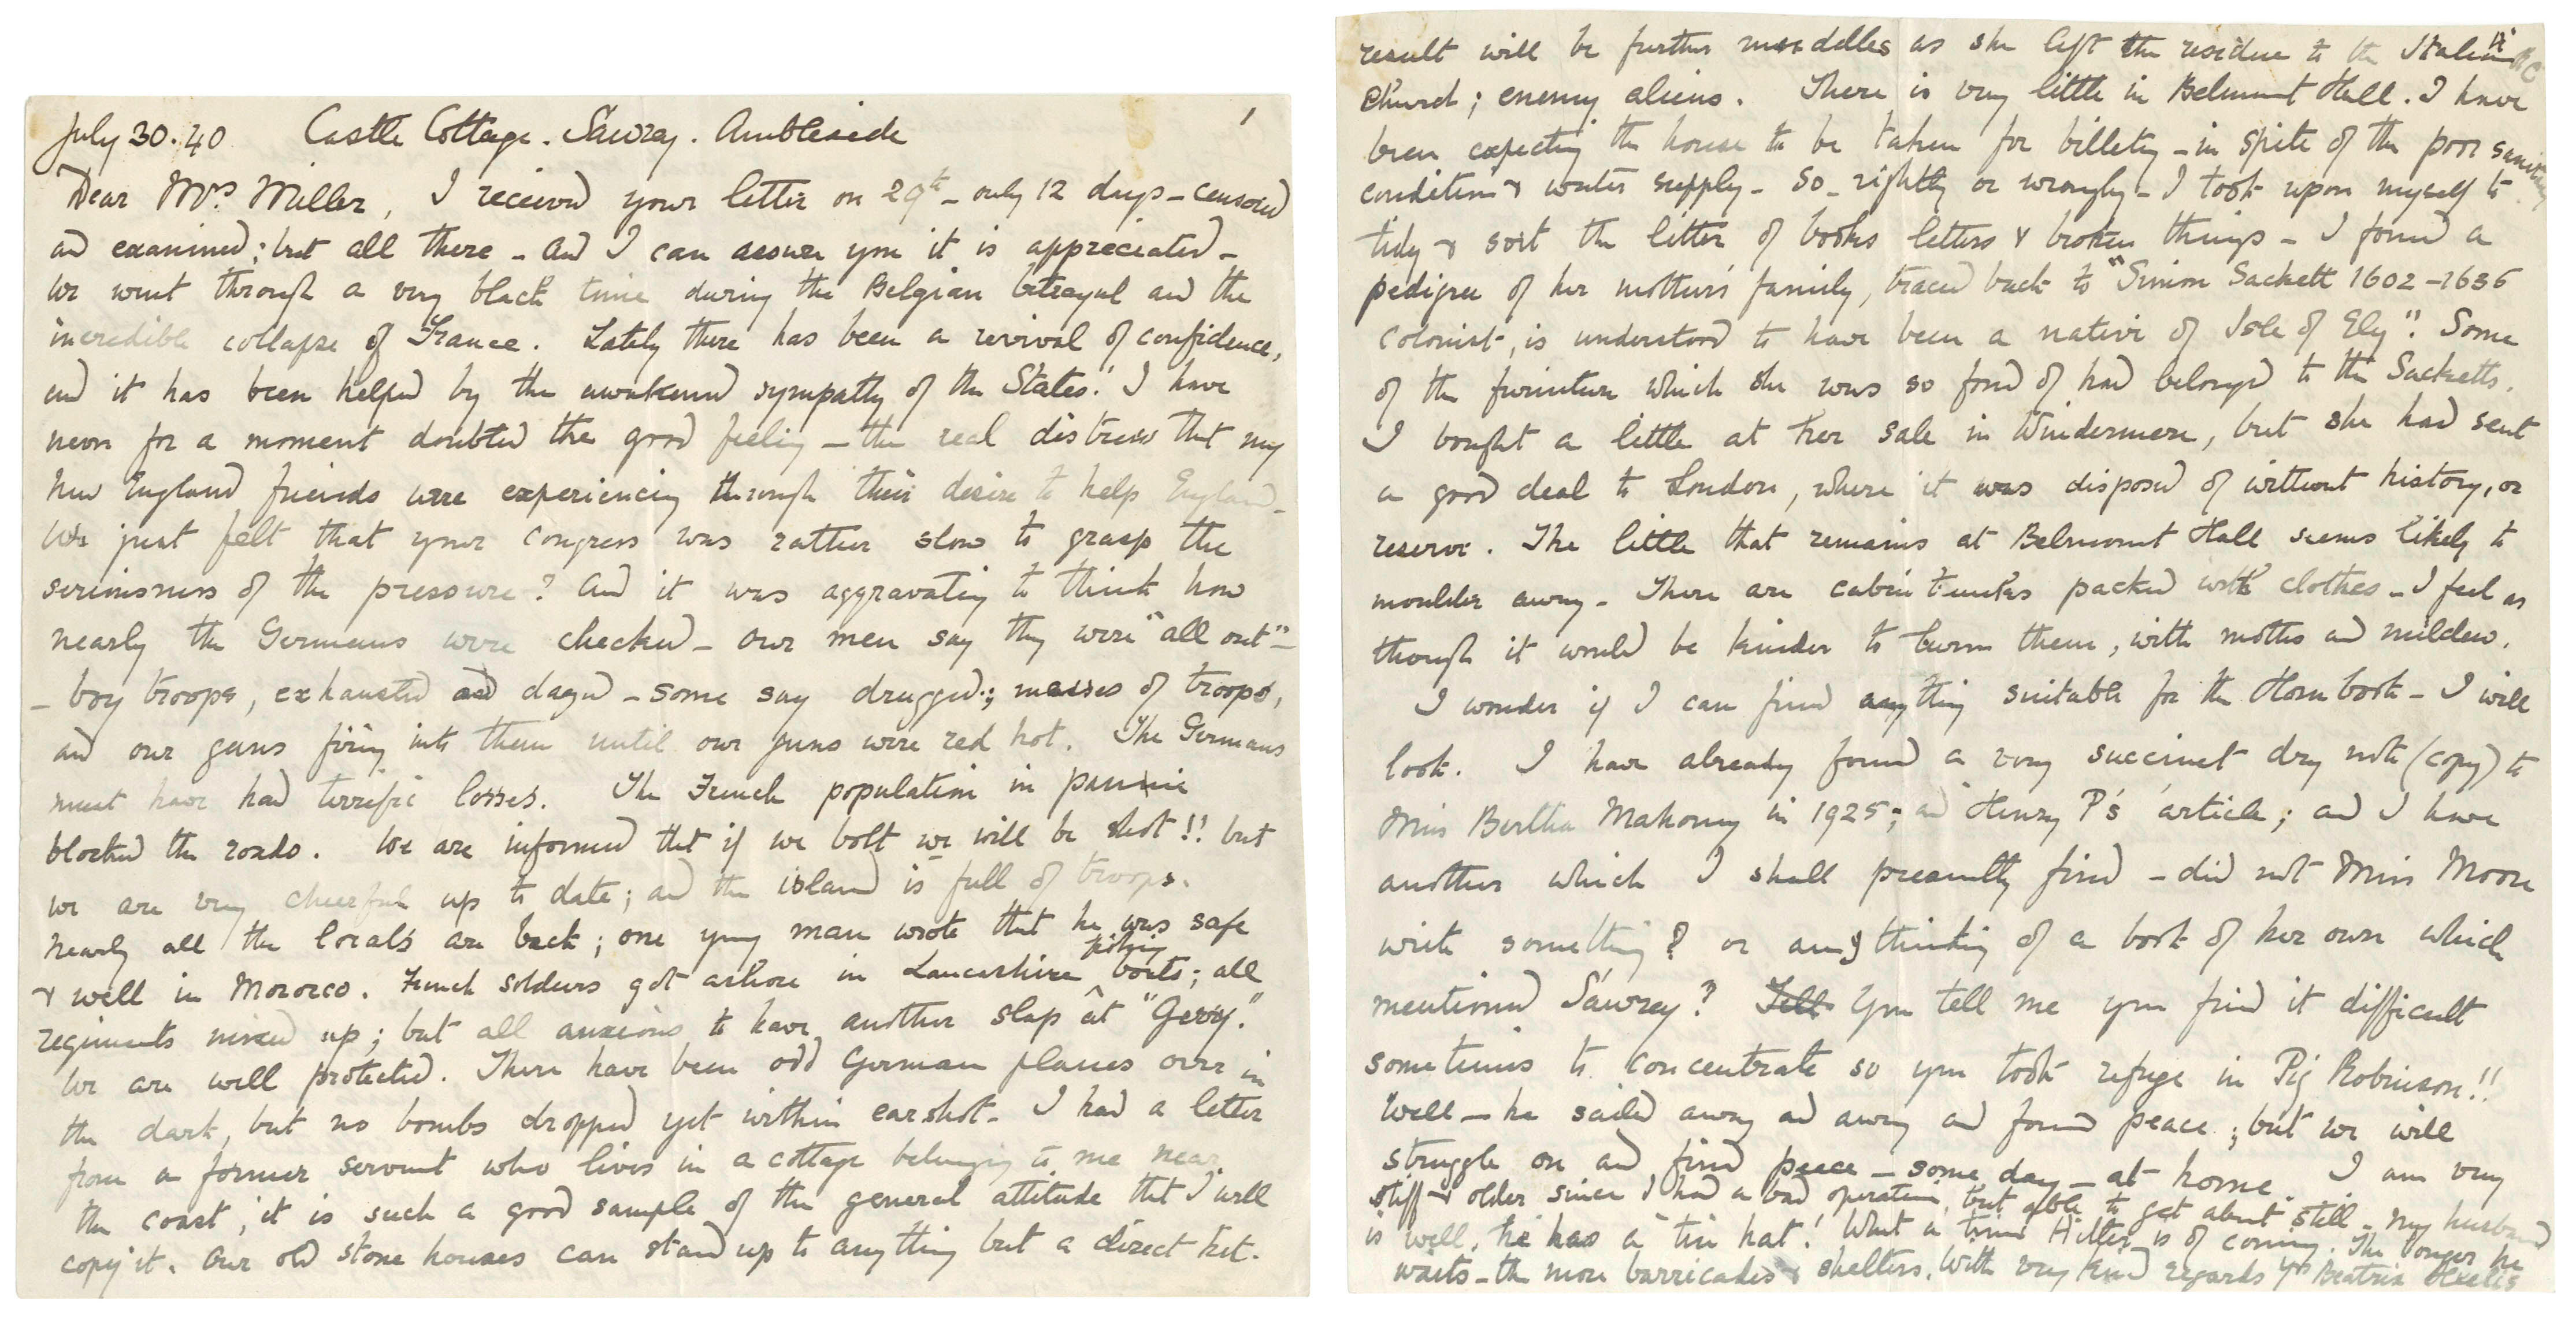 1
July 30.40 Castle Cottage. Sawrey. Ambleside
Dear Mrs Miller, I received your letter on 29th - only 12 days - censored
and examined; but all there - and I can assure you it is appreciated -
We went through a very black time during the Belgian betrayal and the
incredible collapse of France. Lately there has been a revival of confidence,
and it has been helped by the awakened sympathy of the States. I have
never for a moment doubted the good feeling - the real distress that my
New England friends were experiencing through their desire to help England -
We just felt that your congress was rather slow to grasp the
seriousness of the pressure? And it was aggravating to think how
nearly the Germans were checked - our men say they were "all out" -
- boy troops, exhausted and dazed - some say drugged; masses of troops,
and our guns firing into them until our guns were red hot. The Germans
must have had terrific losses. The French population in panic
blocked the roads. We are informed that if we bolt we will be shot!! but
we are very cheerful up to date; and the island is full of troops.
Nearly all the locals are back; one young man wrote that he was safe
& well in Morocco. French soldiers got ashore in Lancashire fishing boats; all
regiments mixed up; but all anxious to have another slap at "Gerry".
We are well protected. There have been odd German planes over in
the dark, but no bombs dropped yet within earshot. I had a letter
from a former servant who lives in a cottage belonging to me near
the coast, it is such a good sample of the general attitude that I will
copy it. Our old stone houses can stand up to anything but a direct hit.
result will be further muddles as she left the residue to the Italian RC
Church; enemy aliens. There is very little in Belmount Hall. I have
been expecting the house to be taken for billeting - in spite of the poor sanitary
condition & water supply - So - rightly or wrongly - I took upon myself to
tidy & sort the litter of books letters & broken things - I found a
pedigree of her mother's family, traced back to "Simon Sackett 1602-1636
colonist, is understood to have been a native of Isle of Ely". Some
of the furniture which she was so fond of had belonged to the Sacketts.
I bought a little at her sale in Windermere, but she had sent
a good deal to London, where it was disposed of without history, or
reserve. The little that remains at Belmount Hall seems likely to
moulder away - There are cabin trunks packed with clothes - I feel as
though it would be kinder to burn them, with moths and mildew.
I wonder if I can find anything suitable for the Horn book - I will
look. I have already found a very succinct dry note (copy) to
Miss Bertha Mahoney in 1925; and Henry P's article; and I have
another which I shall presently find - did not Miss Moore
write something? or am I thinking of a book of her own which
mentioned Sawrey? Tell You tell me you find it difficult
sometimes to concentrate so you took refuge in Pig Robinson!!
Well - he sailed away and away and found peace; but we will
struggle on and find peace - some day - at home. I am very
stiff & older since I had a bad operation, but able to get about still. My husband
is well, he has a tin hat! What a time Hitler is of coming. The longer he
waits - the more barricades & shelters. With very kind regards yrs Beatrix Heelis